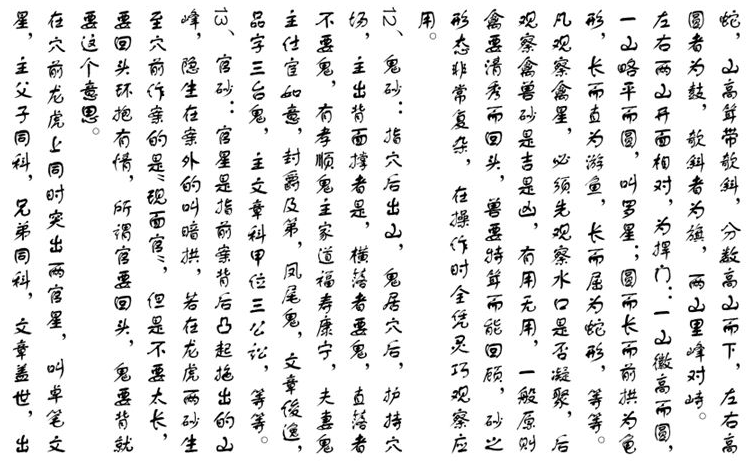 蛇，山高耸带歌斜，分数高山而下，左右高
圆者为鼓，歌斜者为旗，两山里峰对峙。
左右两山开面相对，为捍门：一山微高而圆，
一山略平而圆，叫罗星；圆而长而前拱为龟
形，长而直为游鱼，长而屈为蛇形，等等。
凡观察禽星，必须先观察水口是否凝聚，后
观察禽兽砂是吉是凶，有用无用，一般原则
禽要清秀而回头，兽要特耸而能回顾，砂之
形态非常复杂，在操作时全凭灵巧观察应
用。
12、鬼砂：指穴后出山，鬼居穴后，护持穴
场，主出背面撑者是，横落者要鬼，直落者
不要鬼，有孝顺鬼主家道福寿康宁，夫妻鬼
主仕宦如意，封爵及第，凤尾鬼，文章俊逸，
品字三台鬼，主文章科甲位三公讼，等等。
13、官砂：官星是指前案背后凸起拖出的山
峰，隐生在案外的叫暗拱，若在龙虎两砂生
至穴前作案的是“现面官”，但是不要太长，
要回头环抱有情，所谓官要回头，鬼要背就
要这个意思。
在穴前龙虎上同时突出两官星，叫卓笔文
星，主父子同科，兄弟同科，文章盖世，出